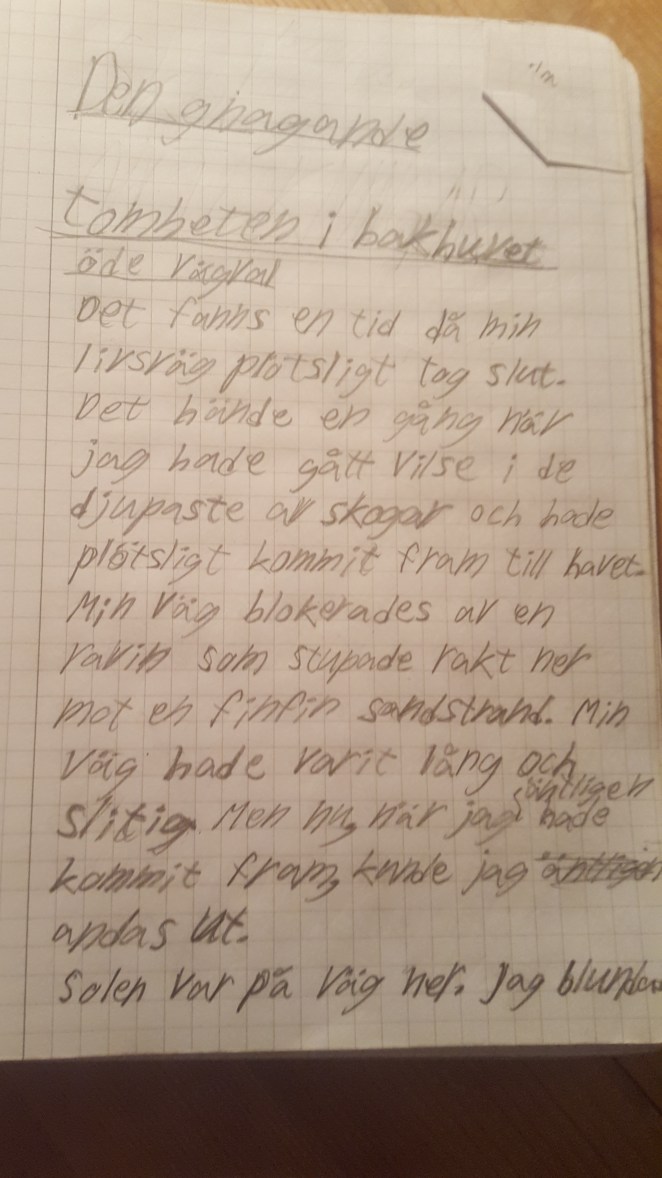 Den gnagande
tomheten i bakhuvet
öde vägval
Det fanns en tid då min
livsväg plötsligt tog slut.
Det hände en gång när
jag hade gått vilse i de
djupaste av skogar och hade
plötsligt kommit fram till havet.
Min väg blokerades av en
ravin som stupade rakt ner
mot en finfin sandstrand. Min
väg hade varit lång och
slitig. Men nu, när jag äntligen hade
kommit fram, kunde jag
andas ut.
Solen var på väg ner. Jag blundar